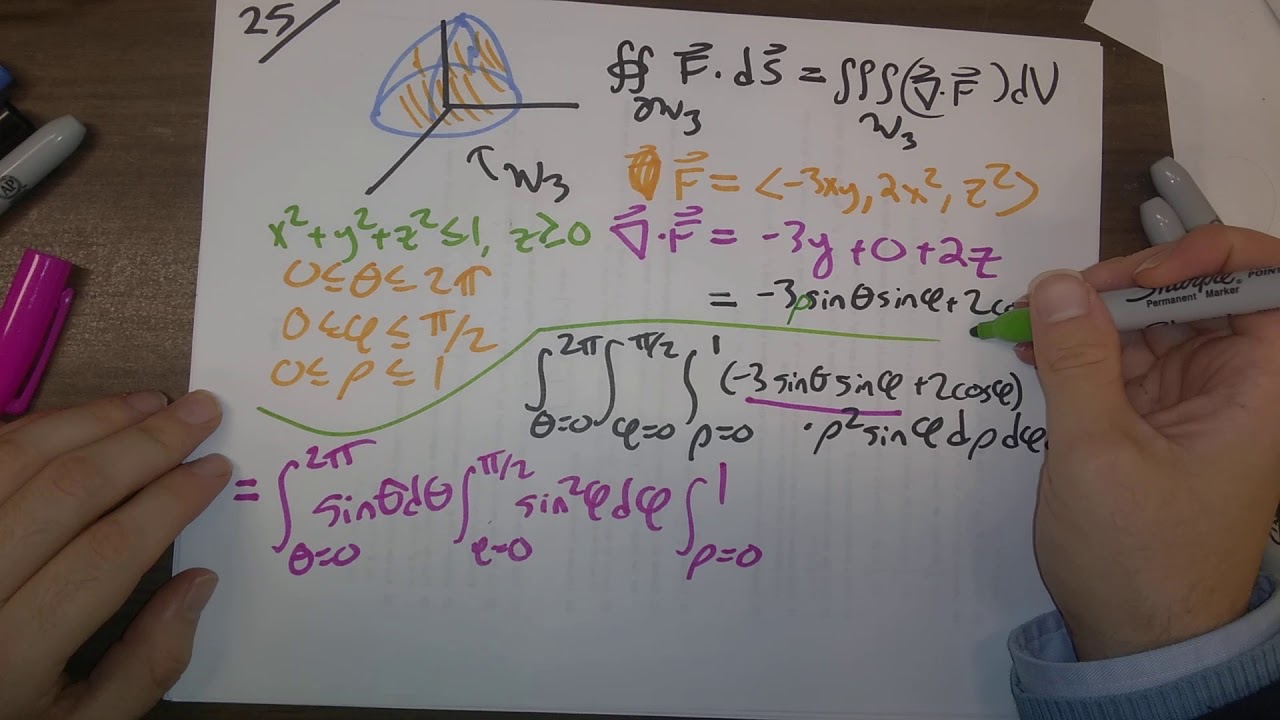 25
∯ F⃗ · dS⃗ = ∭(∇⃗·F⃗)dV
∂W₃ W₃
W₃
F⃗ = ⟨-3xy, 2x², z²⟩
x²+y²+z²≤1, z≥0
∇⃗·F⃗ = -3y+0+2z
0≤θ≤2π
= -3ρsinθsinφ+2co
0≤φ≤π/2
0≤ρ≤1
∫_{θ=0}^{2π} ∫_{φ=0}^{π/2} ∫_{ρ=0}^{1} (-3sinθsinφ+2cosφ)
·ρ²sinφdρdφ
= ∫_{θ=0}^{2π} sinθdθ ∫_{φ=0}^{π/2} sin²φdφ ∫_{ρ=0}^{1}
Sharpie
Permanent Marker
POINT